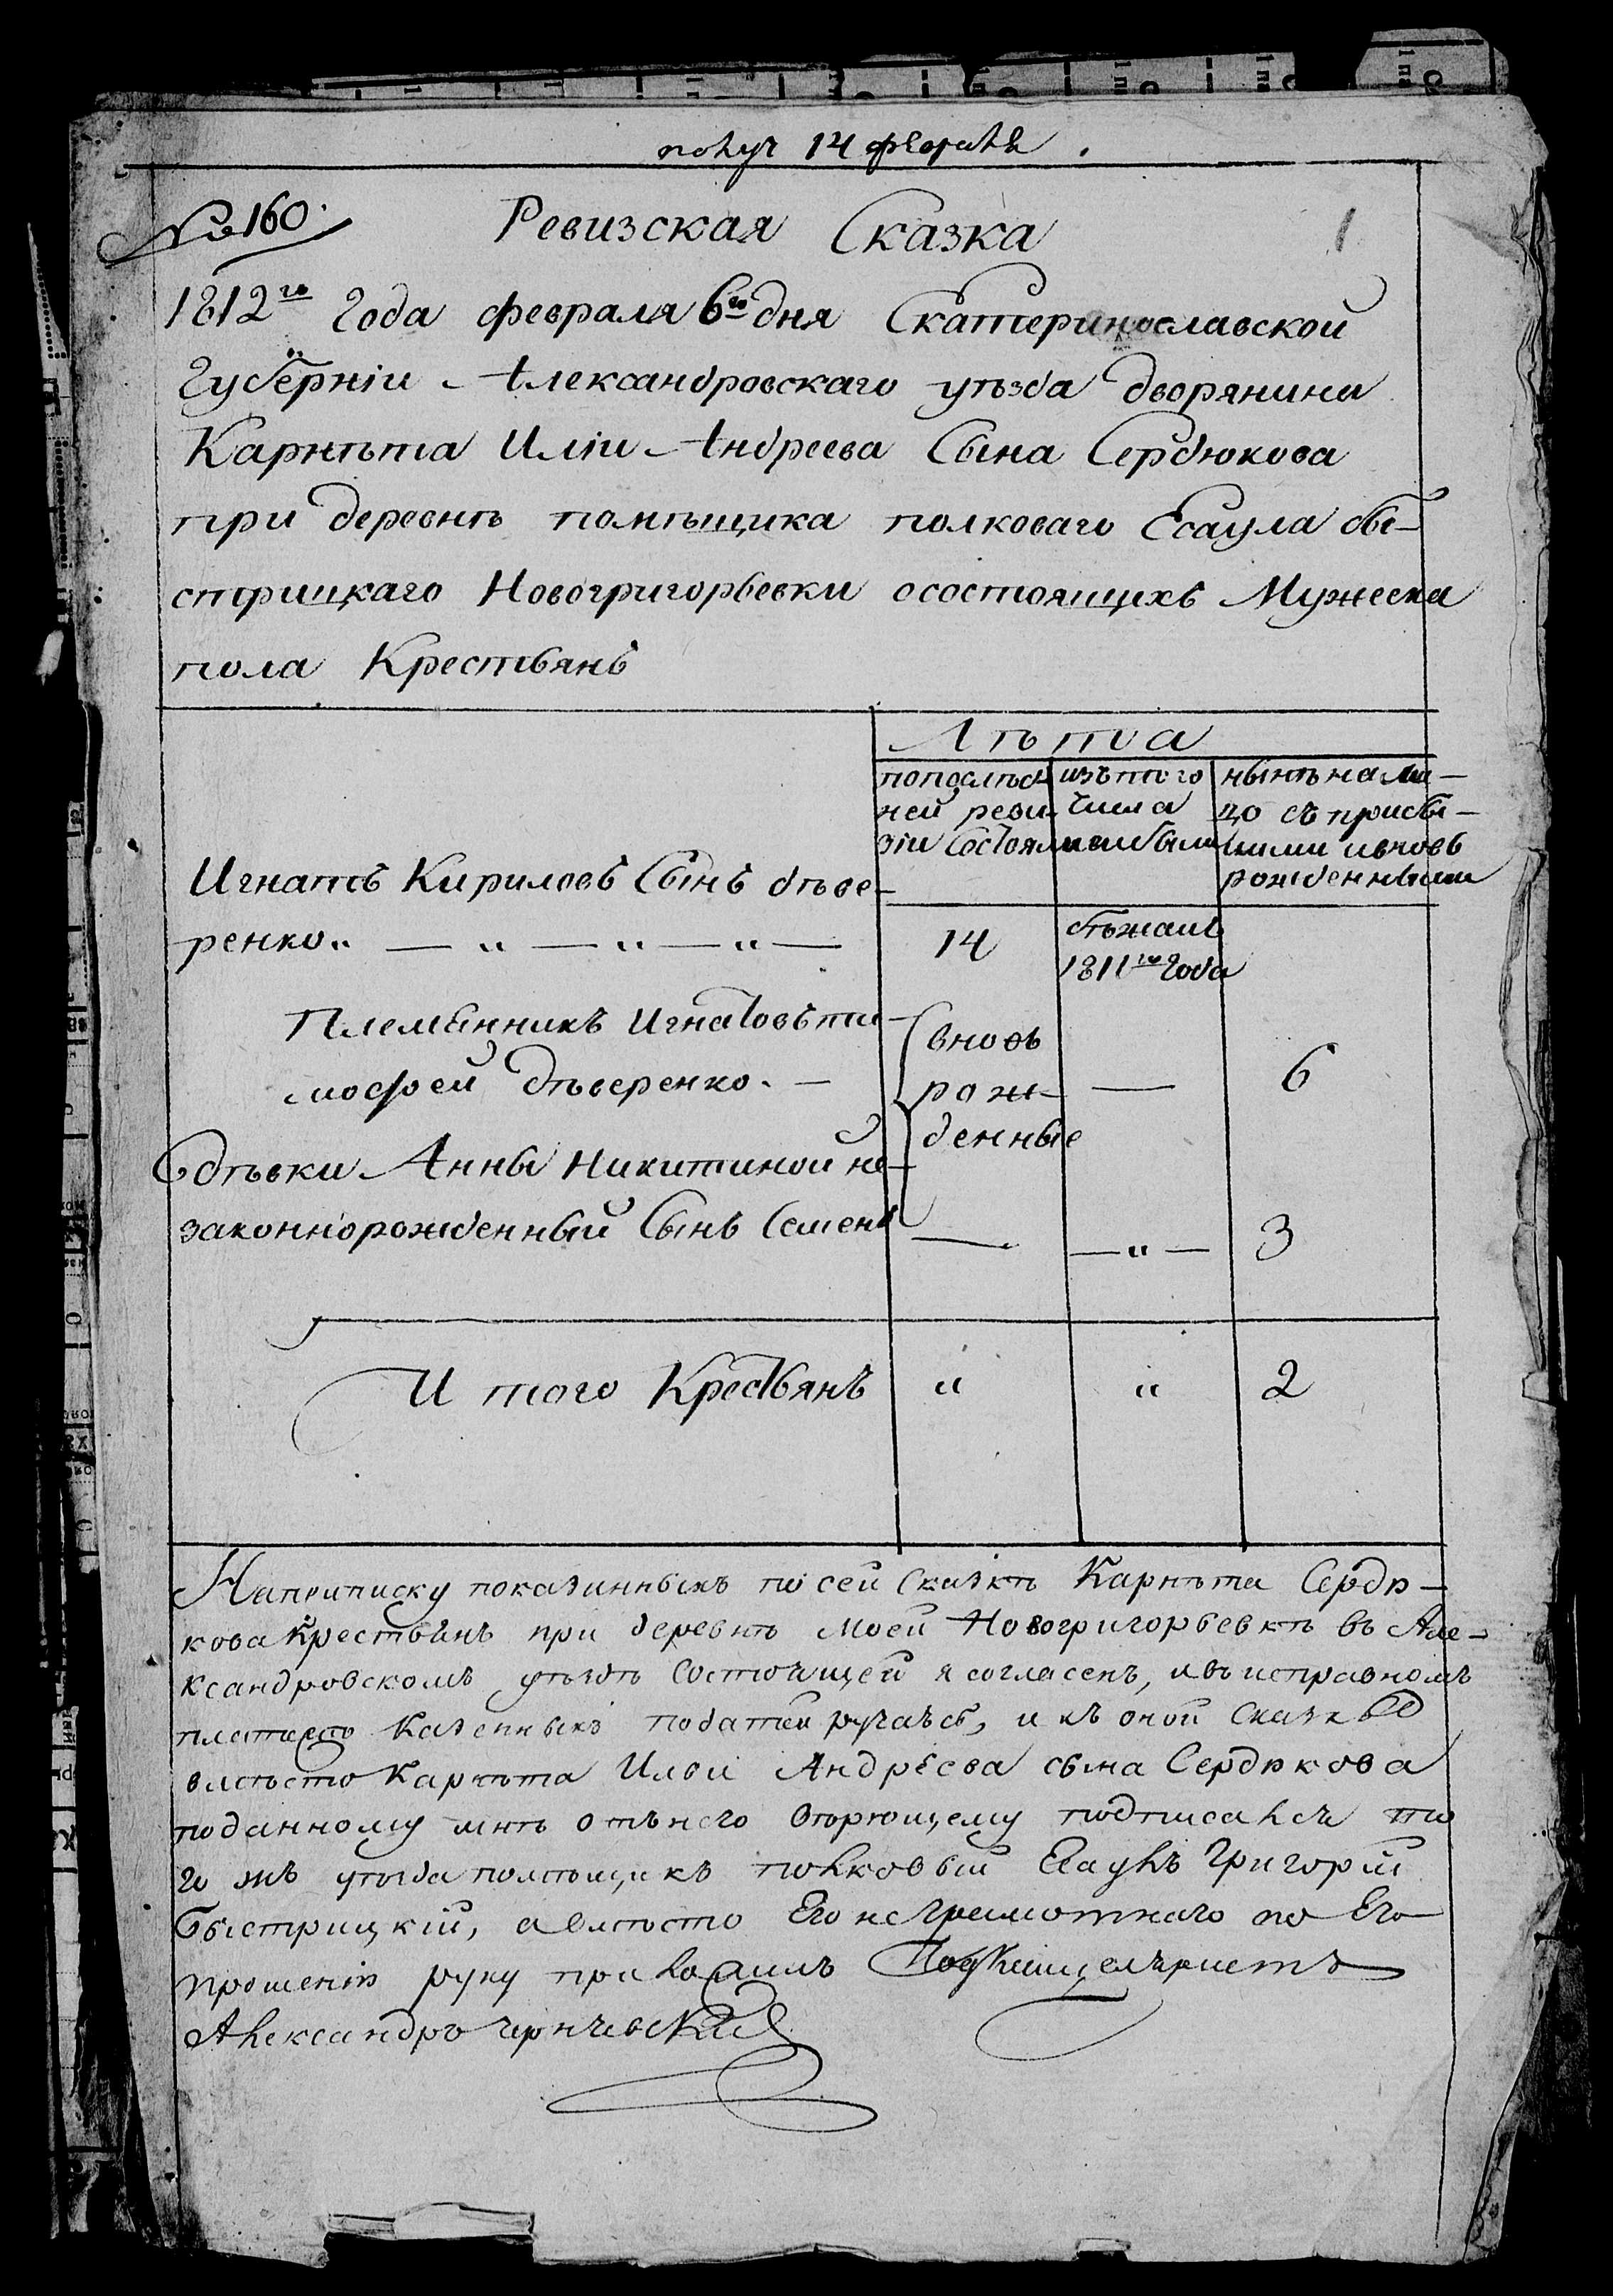 получ 14 февраля.
№ 160.
1
Ревизская Сказка
1812го Года февраля 6го дня Екатеринославской
Губерніи Александровскаго уѣзда дворянина
Карнѣта Иліи Андреева Сына Сердюкова
при деревнѣ помѣщика полковаго Есаула бы-
стрицкаго Новогригорьевки осостоящихъ Мужеска
пола Крестьянъ
Лѣта
попослѣд-
ней реви-
зіи Состояло
изътого
числа
выбыло
нынѣ нали-
цо съ прибы-
лыми ивновь
рожденными
Игнатъ Кириловъ Сынъ дѣве-
ренко
14
бѣжалъ
1811го Года
Племянникъ Игнатовъ ти-
мофей дѣверенко. —
вновь
рож-
денные
—
6
дѣвки Анны Никитиной не-
законнорожденный Сынъ Семенъ
— — „ — 3
И того Крестьянъ „ „ 2
Наприписку показанныхъ по сей Сказкѣ Карнѣта Сердю-
кова Крестьянъ при деревнѣ моей Новогригорьевкѣ въ Але-
ксандровскомъ уѣздѣ Состоящей я согласенъ, ивъ исправномъ
платежѣ Казенныхъ податей ручаюсь, и къ оной Сказкѣ
вмѣсто Карнѣта Ильи Андреева сына Сердюкова
поданному мнѣ отънего вѣрющему подписался то
го жъ уѣзда помѣщикъ полковый Есаулъ Григорій
Быстрицкій, авмѣсто Его неграмотнаго по Его
прошенію руку приложилъ
Александръ